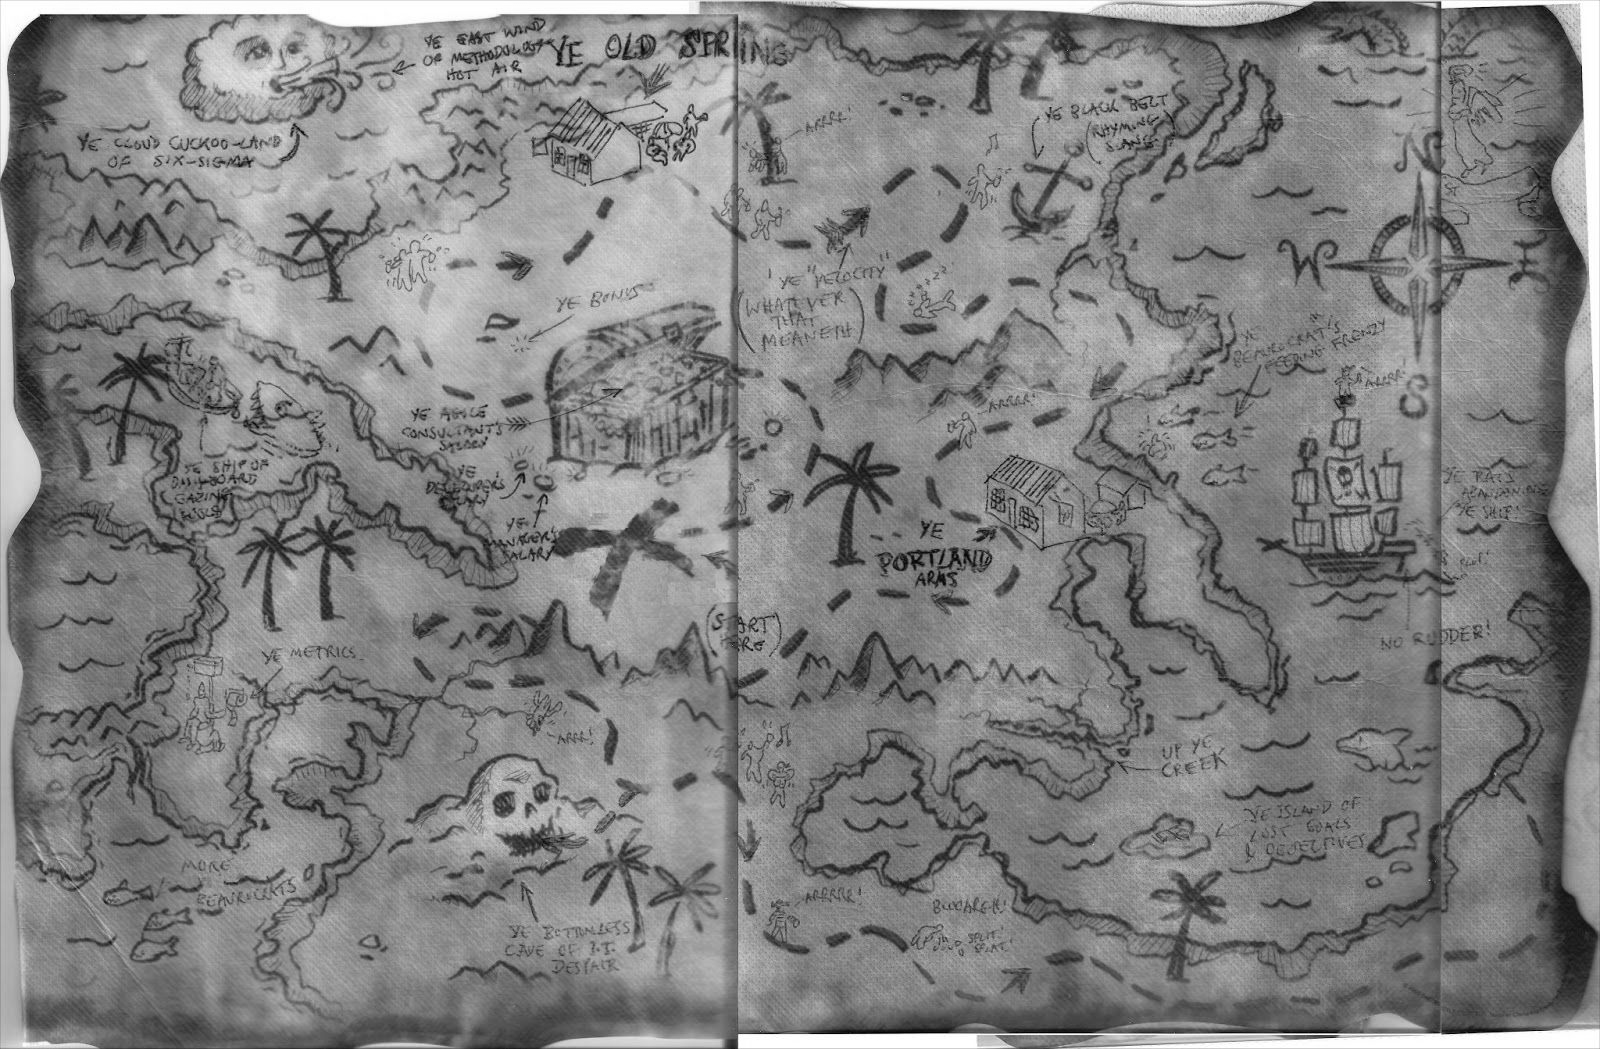 YE EAST WIND
OF METHODOLOGY
HOT AIR
YE OLD SPRING
YE CLOUD CUCKOO-LAND
OF SIX-SIGMA
ARRR!
YE BLACK BELT
(RHYMING
SLANG)
N
W
S
YE BONUS
YE "VELOCITY"
(WHATEVER
THAT
MEANETH)
YE
BEAUROCRAT'S
FEEDING FRENZY
ARRRR!
YE AGILE
CONSULTANT'S
SALARY
YE
DEVELOPER'S
SALARY
YE
MANAGER'S
SALARY
YE SHIP OF
DASHBOARD
GAZING
FOOLS
ARRRR!
YE
PORTLAND
ARMS
YE RATS
ABANDONING
YE SHIP!
NO RUDDER!
(START
HERE)
YE METRICS
ARRR!
UP YE
CREEK
YE ISLAND OF
LOST GOALS
& OBJECTIVES
MORE
BEAUROCRATS
YE BOTTOMLESS
CAVE OF I.T.
DESPAIR
ARRRRR!
SPLIT!
SPLAT!